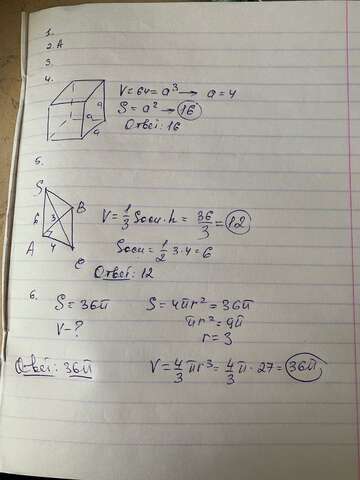 1.
2. А
3.
4.
V = 64 = a³ → a = 4
S = a² → 16
Ответ: 16
a
a
a
5.
S
B
6
3
A
4
C
V = 1/3 Sосн · h = 36/3 = 12
Sосн = 1/2 3·4 = 6
Ответ: 12
6.
S = 36π
S = 4πr² = 36π
V - ?
πr² = 9π
r = 3
Ответ: 36π
V = 4/3 πr³ = 4/3 π · 27 = 36π